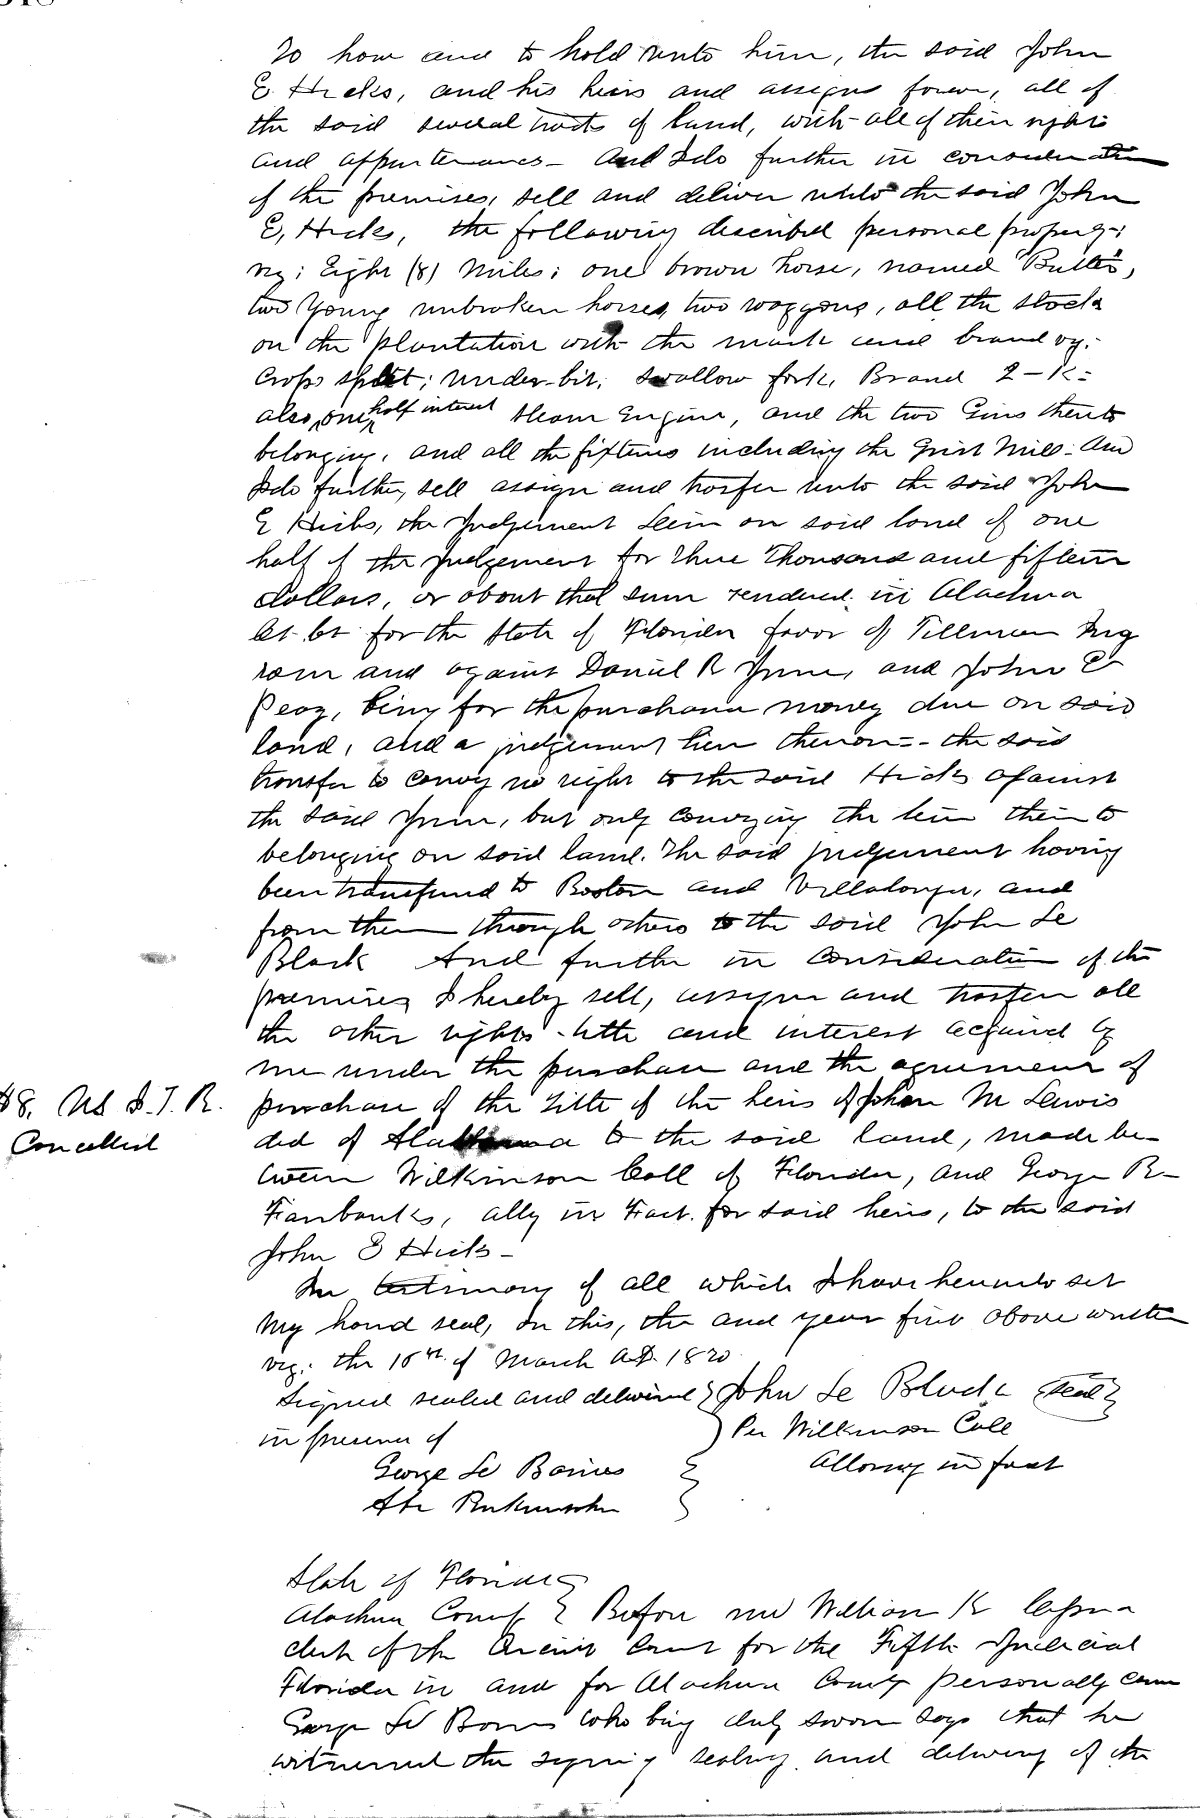 To have and to hold unto him, the said John
E. Hicks, and his heirs and assigns forever, all of
the said several tracts of land, with all of their rights
and appurtenances - And I do further in consideration
of the premises, sell and deliver unto the said John
E, Hicks, the following described personal property:
viz; Eight (8) Mules; one brown horse, named "Butler",
two Young unbroken horses, two waggons, all the stock
on the plantation with the mark and brand viz:
Crop split; under-bit; swallow fork, Brand 2-K=
also, one half interest Steam Engine, and the two Gins thereto
belonging, and all the fixtures including the Grist Mill- And
I do further, sell assign and trasfer unto the said John
E Hicks, the Judgement Lein on said land of one
half of the judgement for Three Thousand and fifteen
dollars, or about that sum rendered in Alachua
Ct. Ct for the State of Florida favor of Tillman Ing
ram and against Daniel R and John C
being for the purchase money due on said
land, and a judgement lien thereon=- the said
transfer to convey no right to the said Hicks against
the said but only conveying the lein thereto
belonging on said land. The said judgement having
been transferred to Boston and Villalonga, and
from them through others to the said John Le
Black And further in consideration of the
premises I hereby sell, assign and trasfer all
the other rights - title and interest acquired by
me under the purchase and the agreement of
$8. US I. T. R.
purchase of the title of the heirs of John M Lewis
Cancelled
dcd of Alabama to the said land, made be-
tween Wilkinson Call of Florida, and George R-
Fairbanks, atty in Fact. for said heirs, to the said
John E Hicks-
In testimony of all which I have hereunto set
My hand seal, on this, the and year first above written
viz: the 16th of March A.D. 1870
Signed sealed and delivered } John Le Black (Seal)
in presence of } Per Wilkinson Call
George Le Barnes } Attorney in fact
State of Florida
Alachua County } Before me William K Cessna
clerk of the Circuit Court for the Fifth Judicial
Florida in and for Alachua County personally came
George Le Barnes who being duly sworn says that he
witnessed the signing sealing and delivery of the